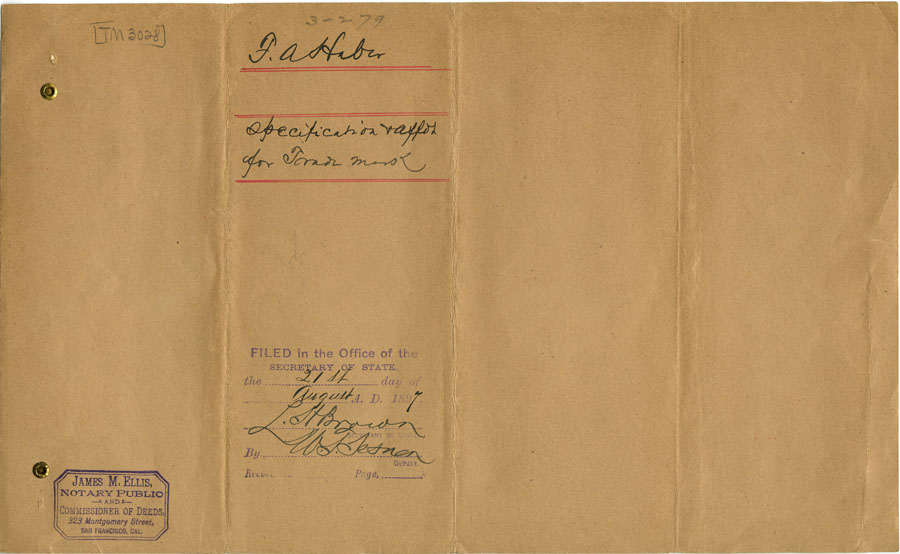 [TM 3028]
3-279
F. A Haber
Specification & affdt
for Trade mark
FILED in the Office of the
SECRETARY OF STATE.
the 21st day of
August A. D. 1897.
L. H Brown
SECRETARY OF STATE
By
DEPUTY.
Record Page,
JAMES M. ELLIS,
NOTARY PUBLIC
AND
COMMISSIONER OF DEEDS,
323 Montgomery Street,
SAN FRANCISCO, CAL.